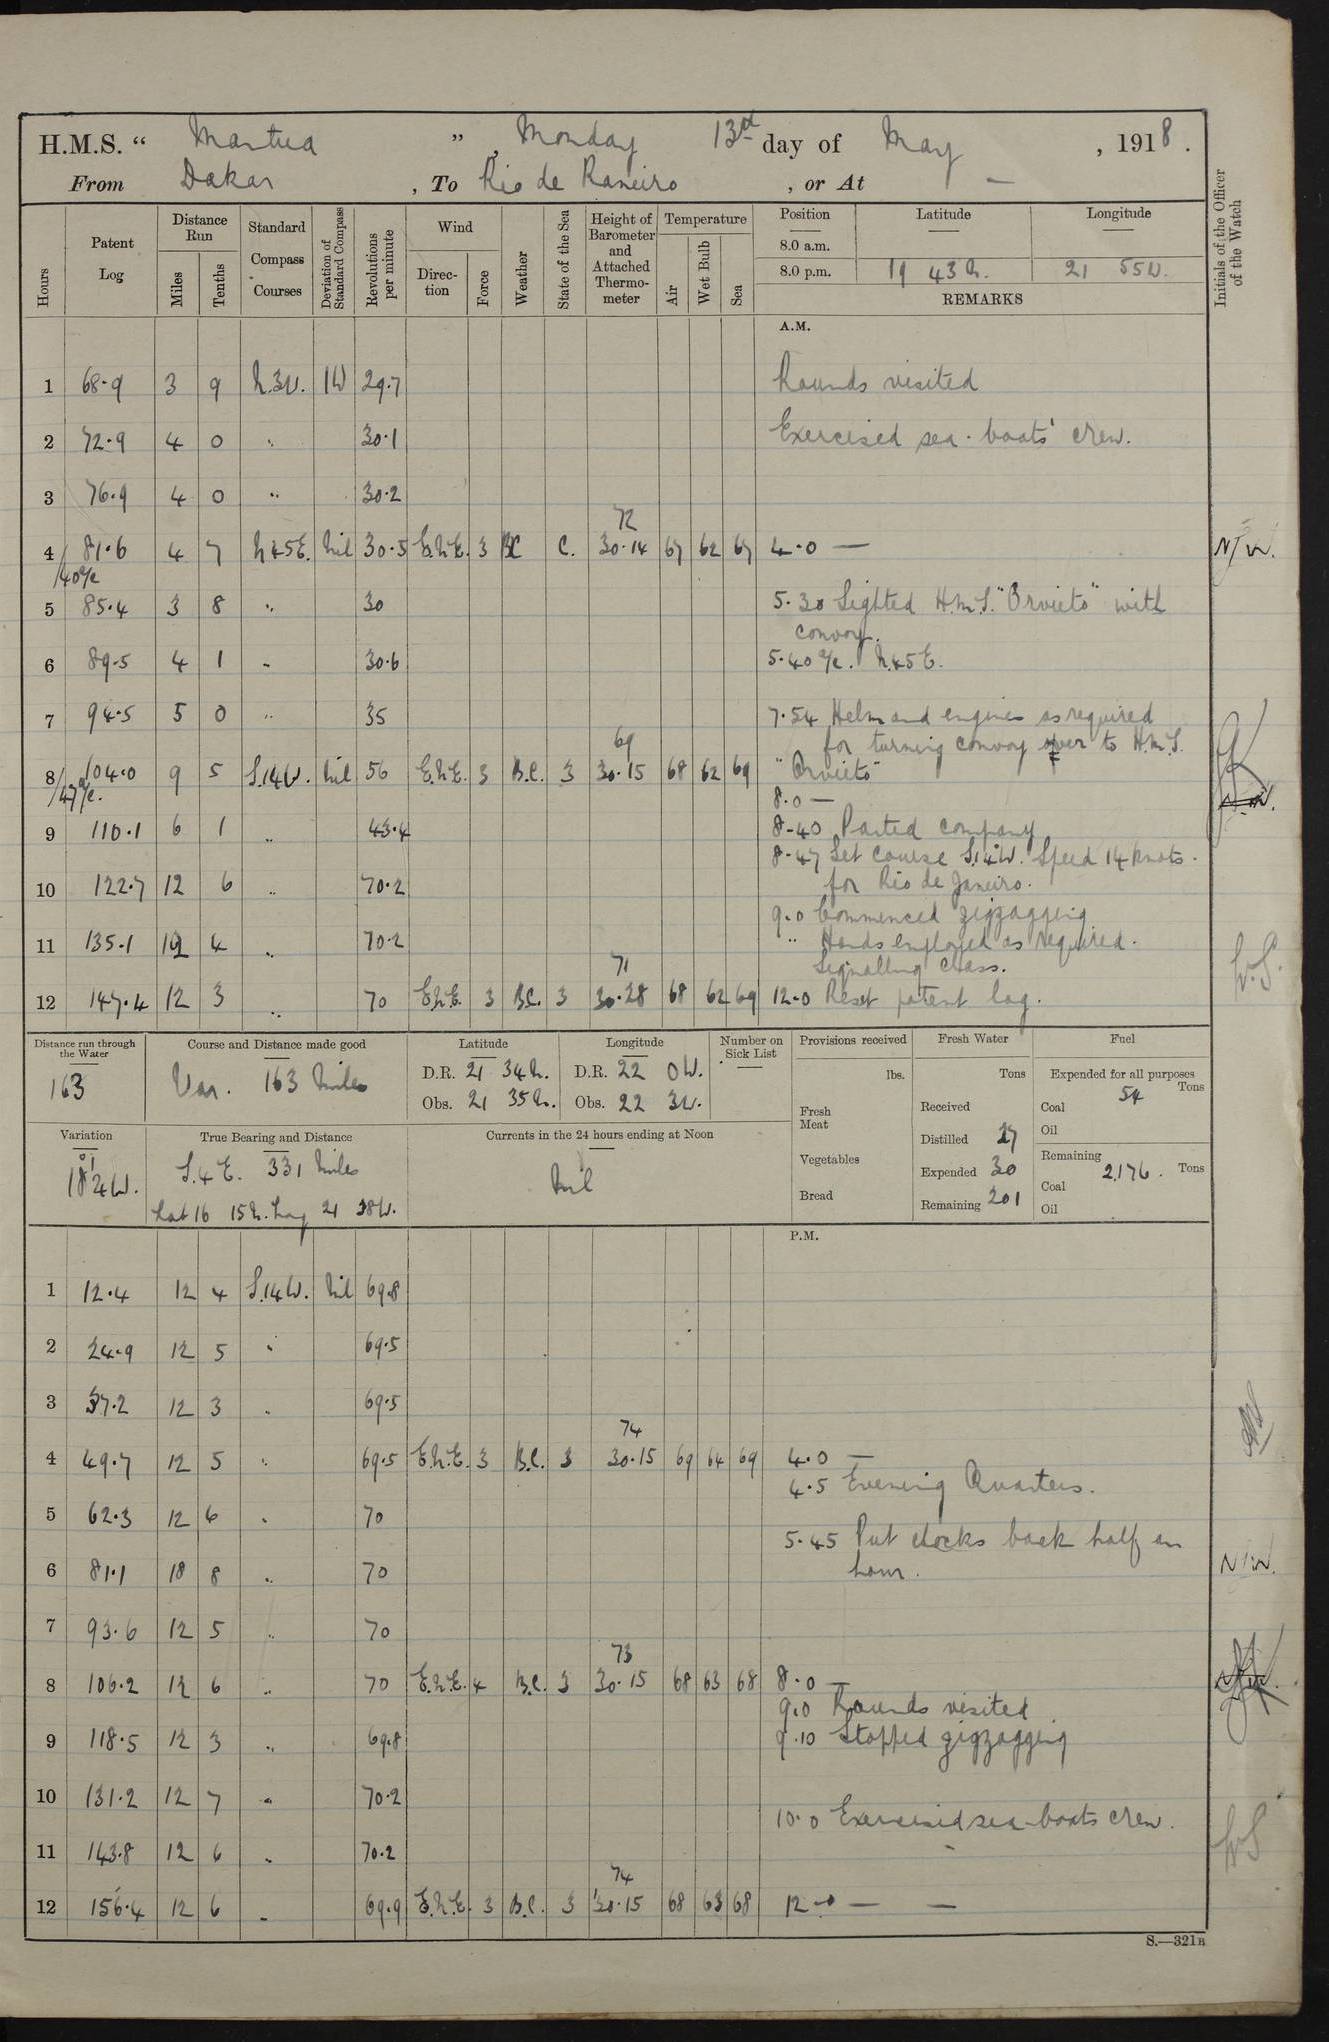 H.M.S. “ Mantua ” , Monday 13th day of May , 1918 .
From Dakar , To Rio de Raneiro , or At —
Hours Patent Log Distance Run Miles Tenths Standard Compass Courses Deviation of Standard Compass Revolutions per minute Wind Direction Force Weather State of the Sea Height of Barometer and Attached Thermometer Temperature Air Wet Bulb Sea Position Latitude Longitude Initials of the Officer of the Watch
8.0 a.m.
8.0 p.m. 19 43 N. 21 55 W.
REMARKS
A.M.
1 68.9 3 9 N.3W. 1W 29.7 Rounds visited
2 72.9 4 0 " 30.1 Exercised sea-boats' crew.
3 76.9 4 0 " 30.2
72
4 81.6 4 7 N45E. Nil 30.5 E.N.E. 3 BC C. 30.14 67 62 67 4.0 — NJW.
/40 a/c
5 85.4 3 8 " 30 5.30 Sighted H.M.S. "Orvieto" with
convoy.
6 89.5 4 1 " 30.6 5.40 a/c. N.45E.
7 94.5 5 0 " 35 7.54 Helm and engines as required
69 for turning convoy over to H.M.S.
8 104.0 9 5 S.14W. Nil 56 E.N.E. 3 B.C. 3 30.15 68 62 69 "Orvieto"
/47 a/c. 8.0 —
9 110.1 6 1 " 43.4 8-40 Parted company
8-47 Set course S.14°W. Speed 14 knots.
10 122.7 12 6 " 70.2 for Rio de Janeiro.
9.0 Commenced zigzagging
11 135.1 12 4 " 70.2 " Hands employed as required.
71 Signalling class.
12 147.4 12 3 " 70 E.N.E. 3 B.C. 3 30.28 68 62 69 12.0 Reset patent log.
Distance run through the Water Course and Distance made good Latitude Longitude Number on Sick List Provisions received Fresh Water Fuel
163 Var. 163 Miles D.R. 21 34 N. D.R. 22 0 W. — lbs. Tons Expended for all purposes
Obs. 21 35 N. Obs. 22 3 W. Fresh Meat Received Coal 54 Tons
Oil
Variation True Bearing and Distance Currents in the 24 hours ending at Noon Distilled 27
18° 4W. S.4E. 331 Miles Nil Vegetables Expended 30 Remaining
Coal 2,176. Tons
Lat 16 15 N. Long 21 38 W. Bread Remaining 201 Oil
P.M.
1 12.4 12 4 S.14W. Nil 69.8
2 24.9 12 5 " 69.5
3 37.2 12 3 " 69.5
74
4 49.7 12 5 " 69.5 E.N.E. 3 B.C. 3 30.15 69 64 69 4.0 —
4.5 Evening Quarters.
5 62.3 12 6 " 70
5.45 Put clocks back half an
6 81.1 18 8 " 70 hour. NJW.
7 93.6 12 5 " 70
73
8 106.2 12 6 " 70 E.N.E. 4 B.C. 3 30.15 68 63 68 8.0 —
9.0 Rounds visited
9 118.5 12 3 " 69.8 9.10 Stopped zigzagging
10 131.2 12 7 " 70.2
10.0 Exercised sea-boats crew.
11 143.8 12 6 " 70.2
74
12 156.4 12 6 " 69.9 E.N.E. 3 B.C. 3 30.15 68 63 68 12.0 — —
S.—321B